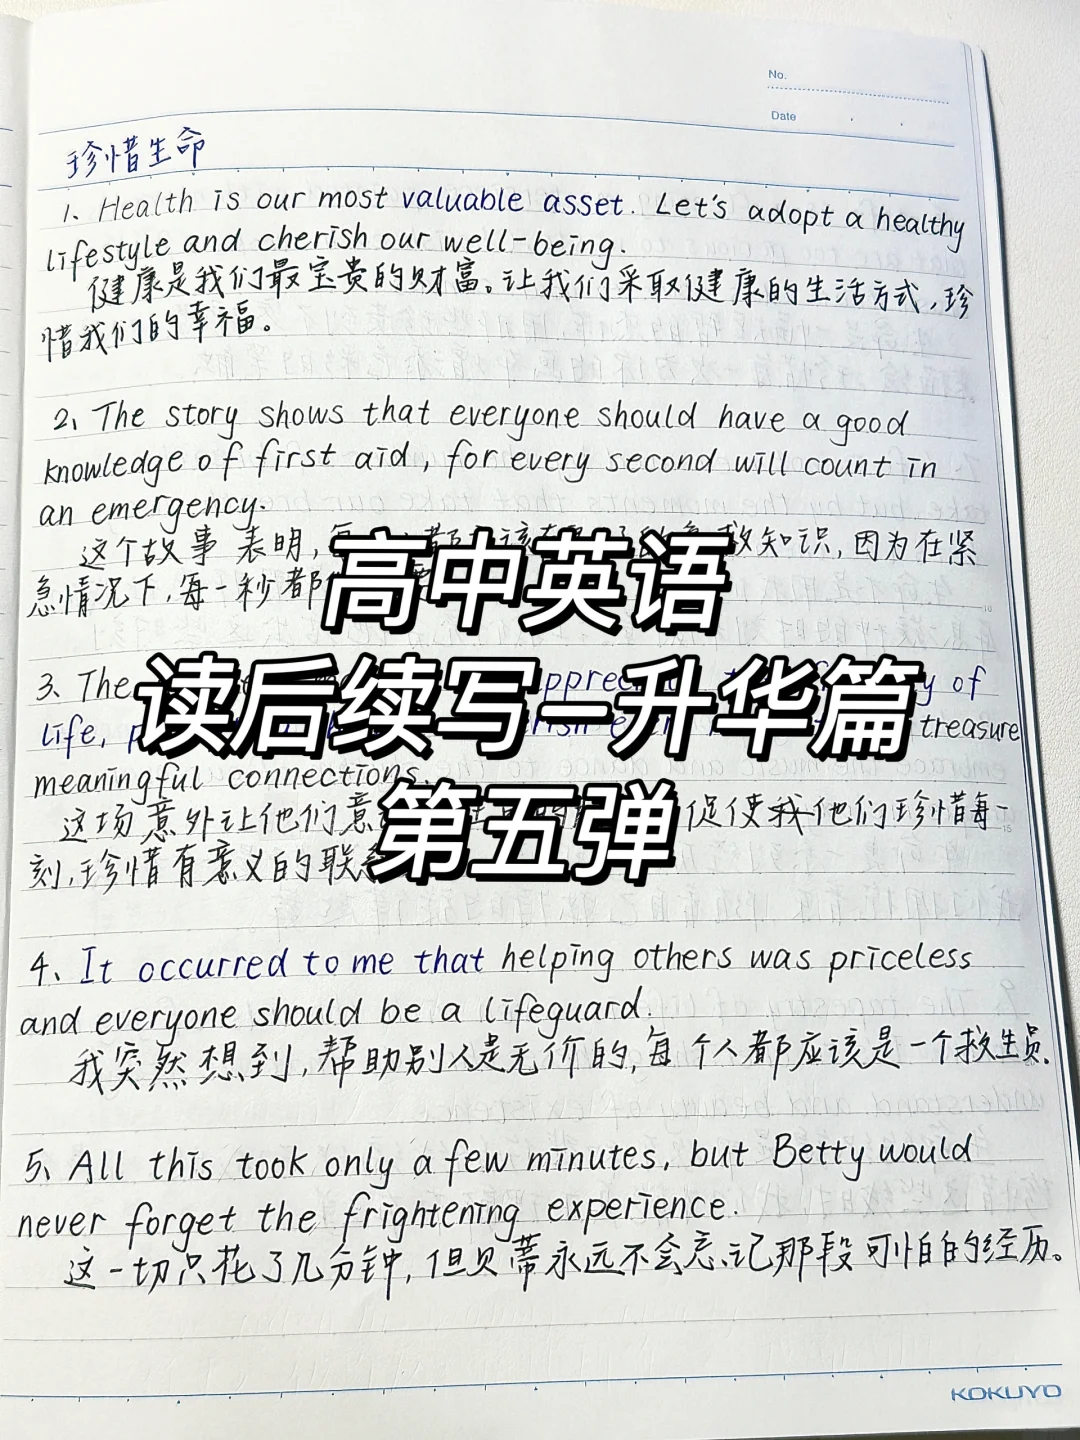 No.
Date
珍惜生命
1、Health is our most valuable asset. Let's adopt a healthy
lifestyle and cherish our well-being.
健康是我们最宝贵的财富。让我们采取健康的生活方式,珍
惜我们的幸福。
2、The story shows that everyone should have a good
knowledge of first aid, for every second will count in
an emergency.
这个故事表明,
救知识,因为在紧
急情况下,每一秒都
高中英语
3、The
of
life,
treasure
读后续写-升华篇
meaningful connections.
这场意外让他们意
促使我他们珍惜每一
第五弹
刻,珍惜有意义的联
4、It occurred to me that helping others was priceless
and everyone should be a lifeguard.
我突然想到,帮助别人是无价的,每个人都应该是一个救生员.
5、All this took only a few minutes, but Betty would
never forget the frightening experience.
这一切只花了几分钟,但贝蒂永远不会忘记那段可怕的经历。
KOKUYO